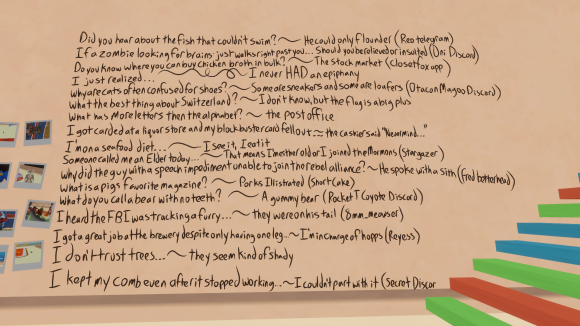 Did you hear about the fish that couldn't swim? ~ He could only flounder (Reo telegram)
If a zombie looking for brains just walks right past you... Should you be relieved or insulted (Oni Discord)
Do you know where you can buy chicken broth in bulk? ~ The stock market (Closetfox app)
I just realized... ~ I never HAD an epiphany
Why are cats often confused for shoes? ~ Some are sneakers and some are loafers (Otacon Magoo Discord)
What the best thing about Switzerland? ~ I don't know, but the flag is a big plus
What has more letters then the alphabet? ~ the post office
I got carded at a liquor store and my blockbuster card fell out. ~ the cashier said "Nevermind..."
I'm on a seafood diet... ~ I see it, I eat it
Someone called me an Elder today... ~ That means I'm either old or I joined the Mormons (Stargazer)
Why did the guy with a speech impediment unable to join the rebel alliance? ~ He spoke with a sith (fred botterhead)
What is a pigs favorite magazine? ~ Porks Illistrated (Short Cake)
What do you call a bear with no teeth? ~ A gummy bear (Pocket T Coyote Discord)
I heard the FBI was tracking a furry... ~ they were on his tail (8mm_meavser)
I got a great job at the brewery despite only having one leg.. ~ I'm in charge of hopps (Reyess)
I don't trust trees... ~ they seem kind of shady
I kept my comb even after it stopped working... ~ I couldn't part with it (Secret Discor